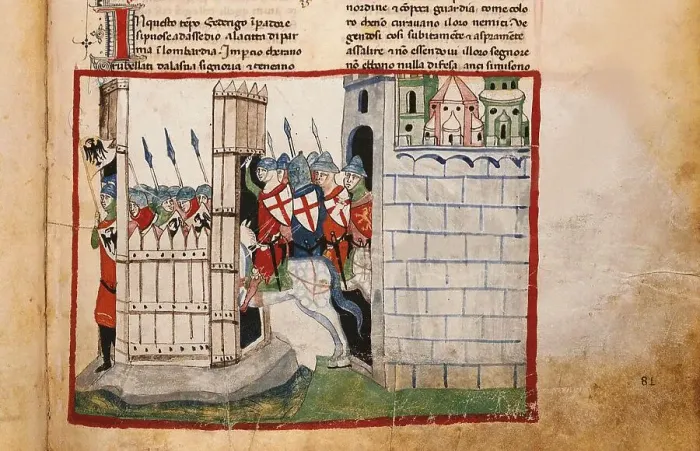 In questo tēpo Federigo īpadore
si puose ad assedio alacitta di par
ma ī lombardia. Impcio cherano
rubellati dalasua signoria ⁊ teneano
nordine ⁊ guardia; come colo
ro cheno curauano iloro nemici. Ve
gendosi cosi subitamēte ⁊ aspramente
assalire ⁊ nō essendoui illoro segnore
nō ebbono nulla difesa anzi simisono
81